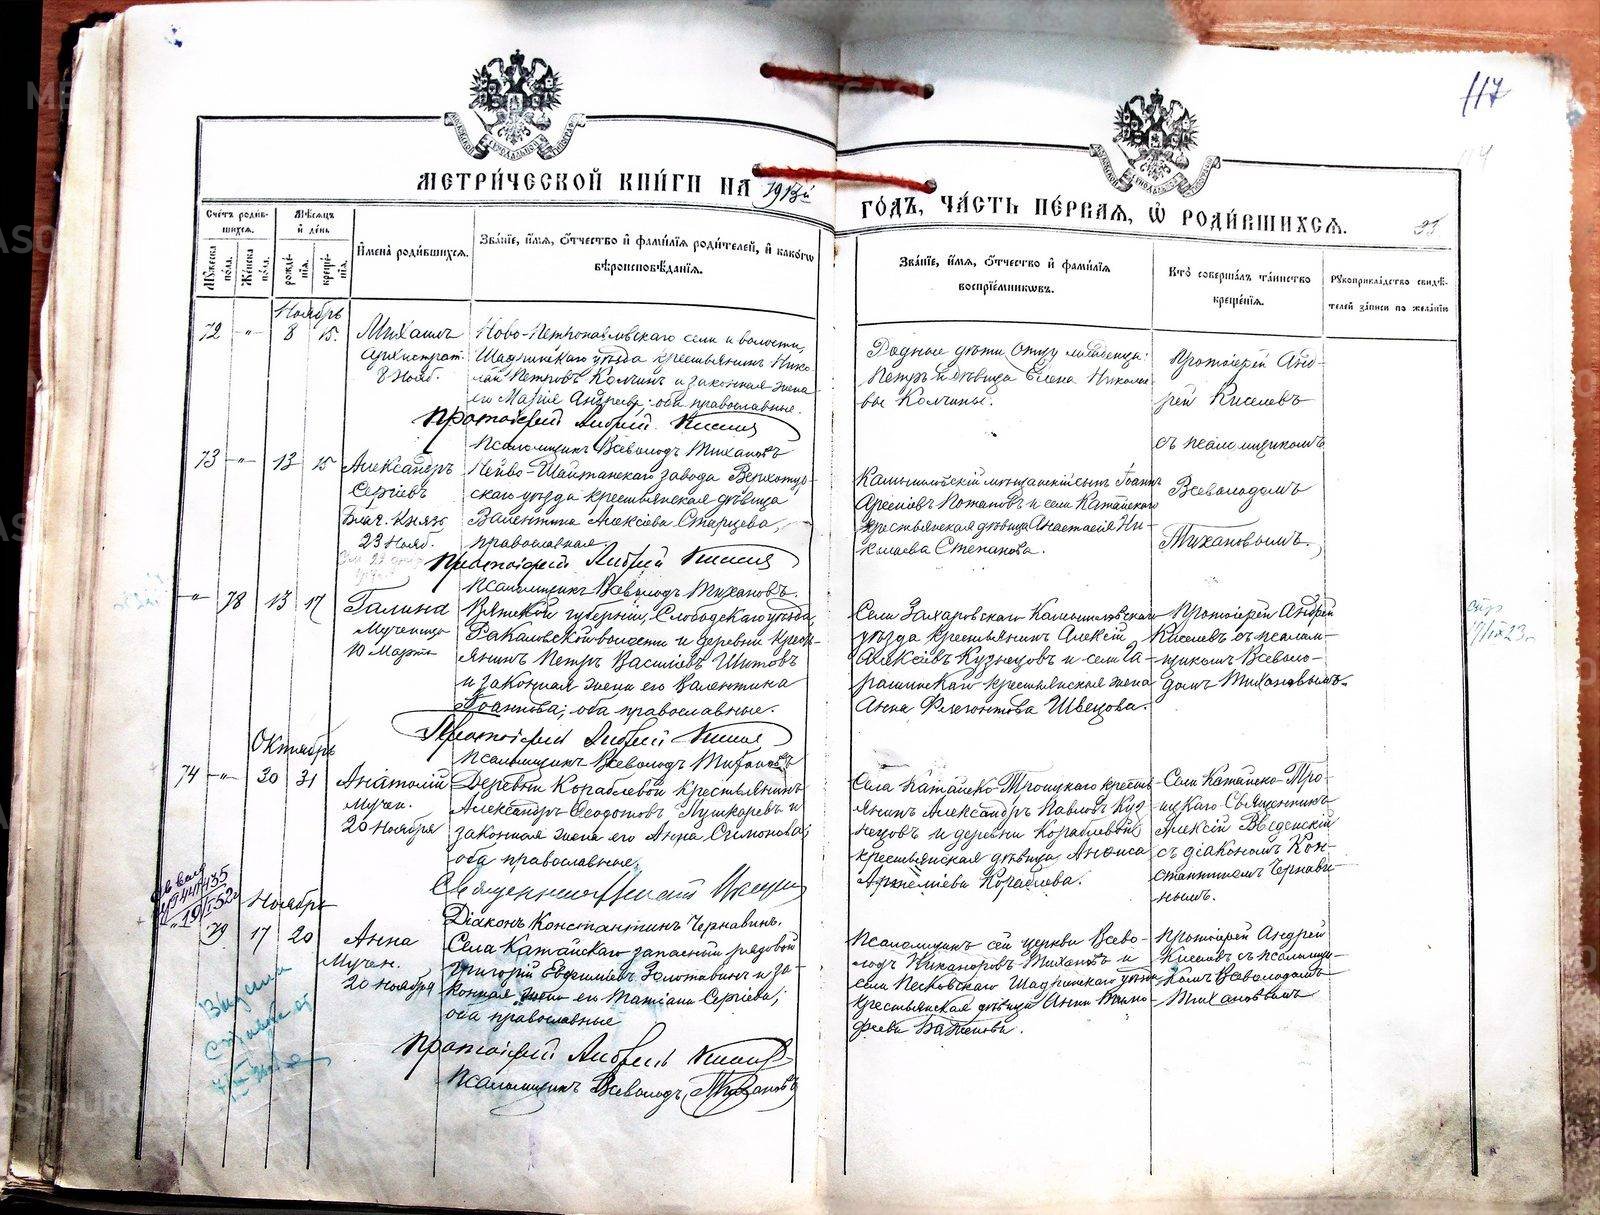 117
МЕТРИЧЕСКОЙ КНИГИ НА 1913й
ГОДЪ, ЧАСТЬ ПЕРВАЯ, Ѡ РОДИВШИХСЯ.
Счетъ родив-
шихся.
Мѣсяцъ
и день
Имена родившихся.
Званіе, имя, отчество и фамилія родителей, и какогѡ
вѣроисповѣданія.
Мужеска
пола.
Женска
пола.
рожде-
нія.
креще-
нія.
Званіе, имя, отчество и фамилія
воспріемниковъ.
Кто совершалъ таинство
крещенія.
Рукоприкладство свидѣ-
телей записи по желанію
Ноябрь
72 -"- 8 15.
Михаилъ
Архистрат.
8 Нояб.
Ново-Петропавловскаго села и волости,
Шадринскаго уѣзда крестьянинъ Нико-
лай Петровъ Колчинъ и законная жена
его Марія Андреев; оба православные.
Протоіерей Андрей Киселев
Псаломщикъ Всеволодъ Тихановъ
Родные дѣти отцу младенца:
Петръ и дѣвица Елена Николае-
вы Колчины.
Протоіерей Анд-
рей Киселевъ
съ псаломщикомъ
Всеволодомъ
Тихановымъ.
73 -"- 13 15
Александръ
Сергіевъ
Благ. Князь
23 Нояб.
Нейво-Шайтанскаго завода Верхотур-
скаго уѣзда крестьянская дѣвица
Валентина Алексіева Старцева,
православная.
Протоіерей Андрей Киселев
Псаломщикъ Всеволодъ Тихановъ.
Камышловскій мѣщанскій сынъ Іоаннъ
Арсеніевъ Потаповъ и села Катайскаго
крестьянская дѣвица Анастасія Ни-
колаева Степанова.
-"- 78 13 17
Галина
Мученица
10 Марта
Вятской губерніи, Слободскаго уѣзда,
Ракаловской волости и деревни крест-
янинъ Петръ Василіевъ Шитовъ
и законная жена его Валентина
Іоаннова; оба православные.
Протоіерей Андрей Киселев
Псаломщикъ Всеволодъ Тихановъ
Села Захаровскаго Камышловскаго
уѣзда крестьянинъ Алексій
Алексіевъ Кузнецовъ и села Га-
рашинскаго крестьянская жена
Анна Флегонтова Швецова.
Протоіерей Андрей
Киселевъ съ псалом-
щикомъ Всеволо-
домъ Тихановымъ.
Октябрь
74 -"- 30 31
Анатолій
Мучен.
20 Ноября
Деревни Кораблевой крестьянинъ
Александръ Ѳеодотовъ Пушкаревъ и
законная жена его Анна Симонова;
оба православные.
Діаконъ Константинъ Чернавинъ.
Села Катайско-Троицкаго кресть-
янинъ Александръ Павловъ Куз-
нецовъ и деревни Кораблевой
крестьянская дѣвица Анфиса
Кораблева.
Села Катайско-Тро-
ицкаго Священникъ
Алексій Введенскій
съ діакономъ Кон-
стантиномъ Чернави-
нымъ.
Ноябрь
79 17 20
Анна
Мучен.
20 Ноября
Села Катайскаго запасный рядовой
Григорій Евдокимовъ Золотавинъ и за-
конная жена его Татіана Сергіева;
оба православные
Протоіерей Андрей Киселев
Псаломщикъ Всеволодъ Тихановъ
Псаломщикъ сей церкви Всево-
лодъ Никаноровъ Тихановъ и
села Песковскаго Шадринскаго уѣзда
крестьянская дѣвица Анна Тимо-
феева Баженова.
Протоіерей Андрей
Киселевъ съ псаломщи-
комъ Всеволодомъ
Тихановымъ